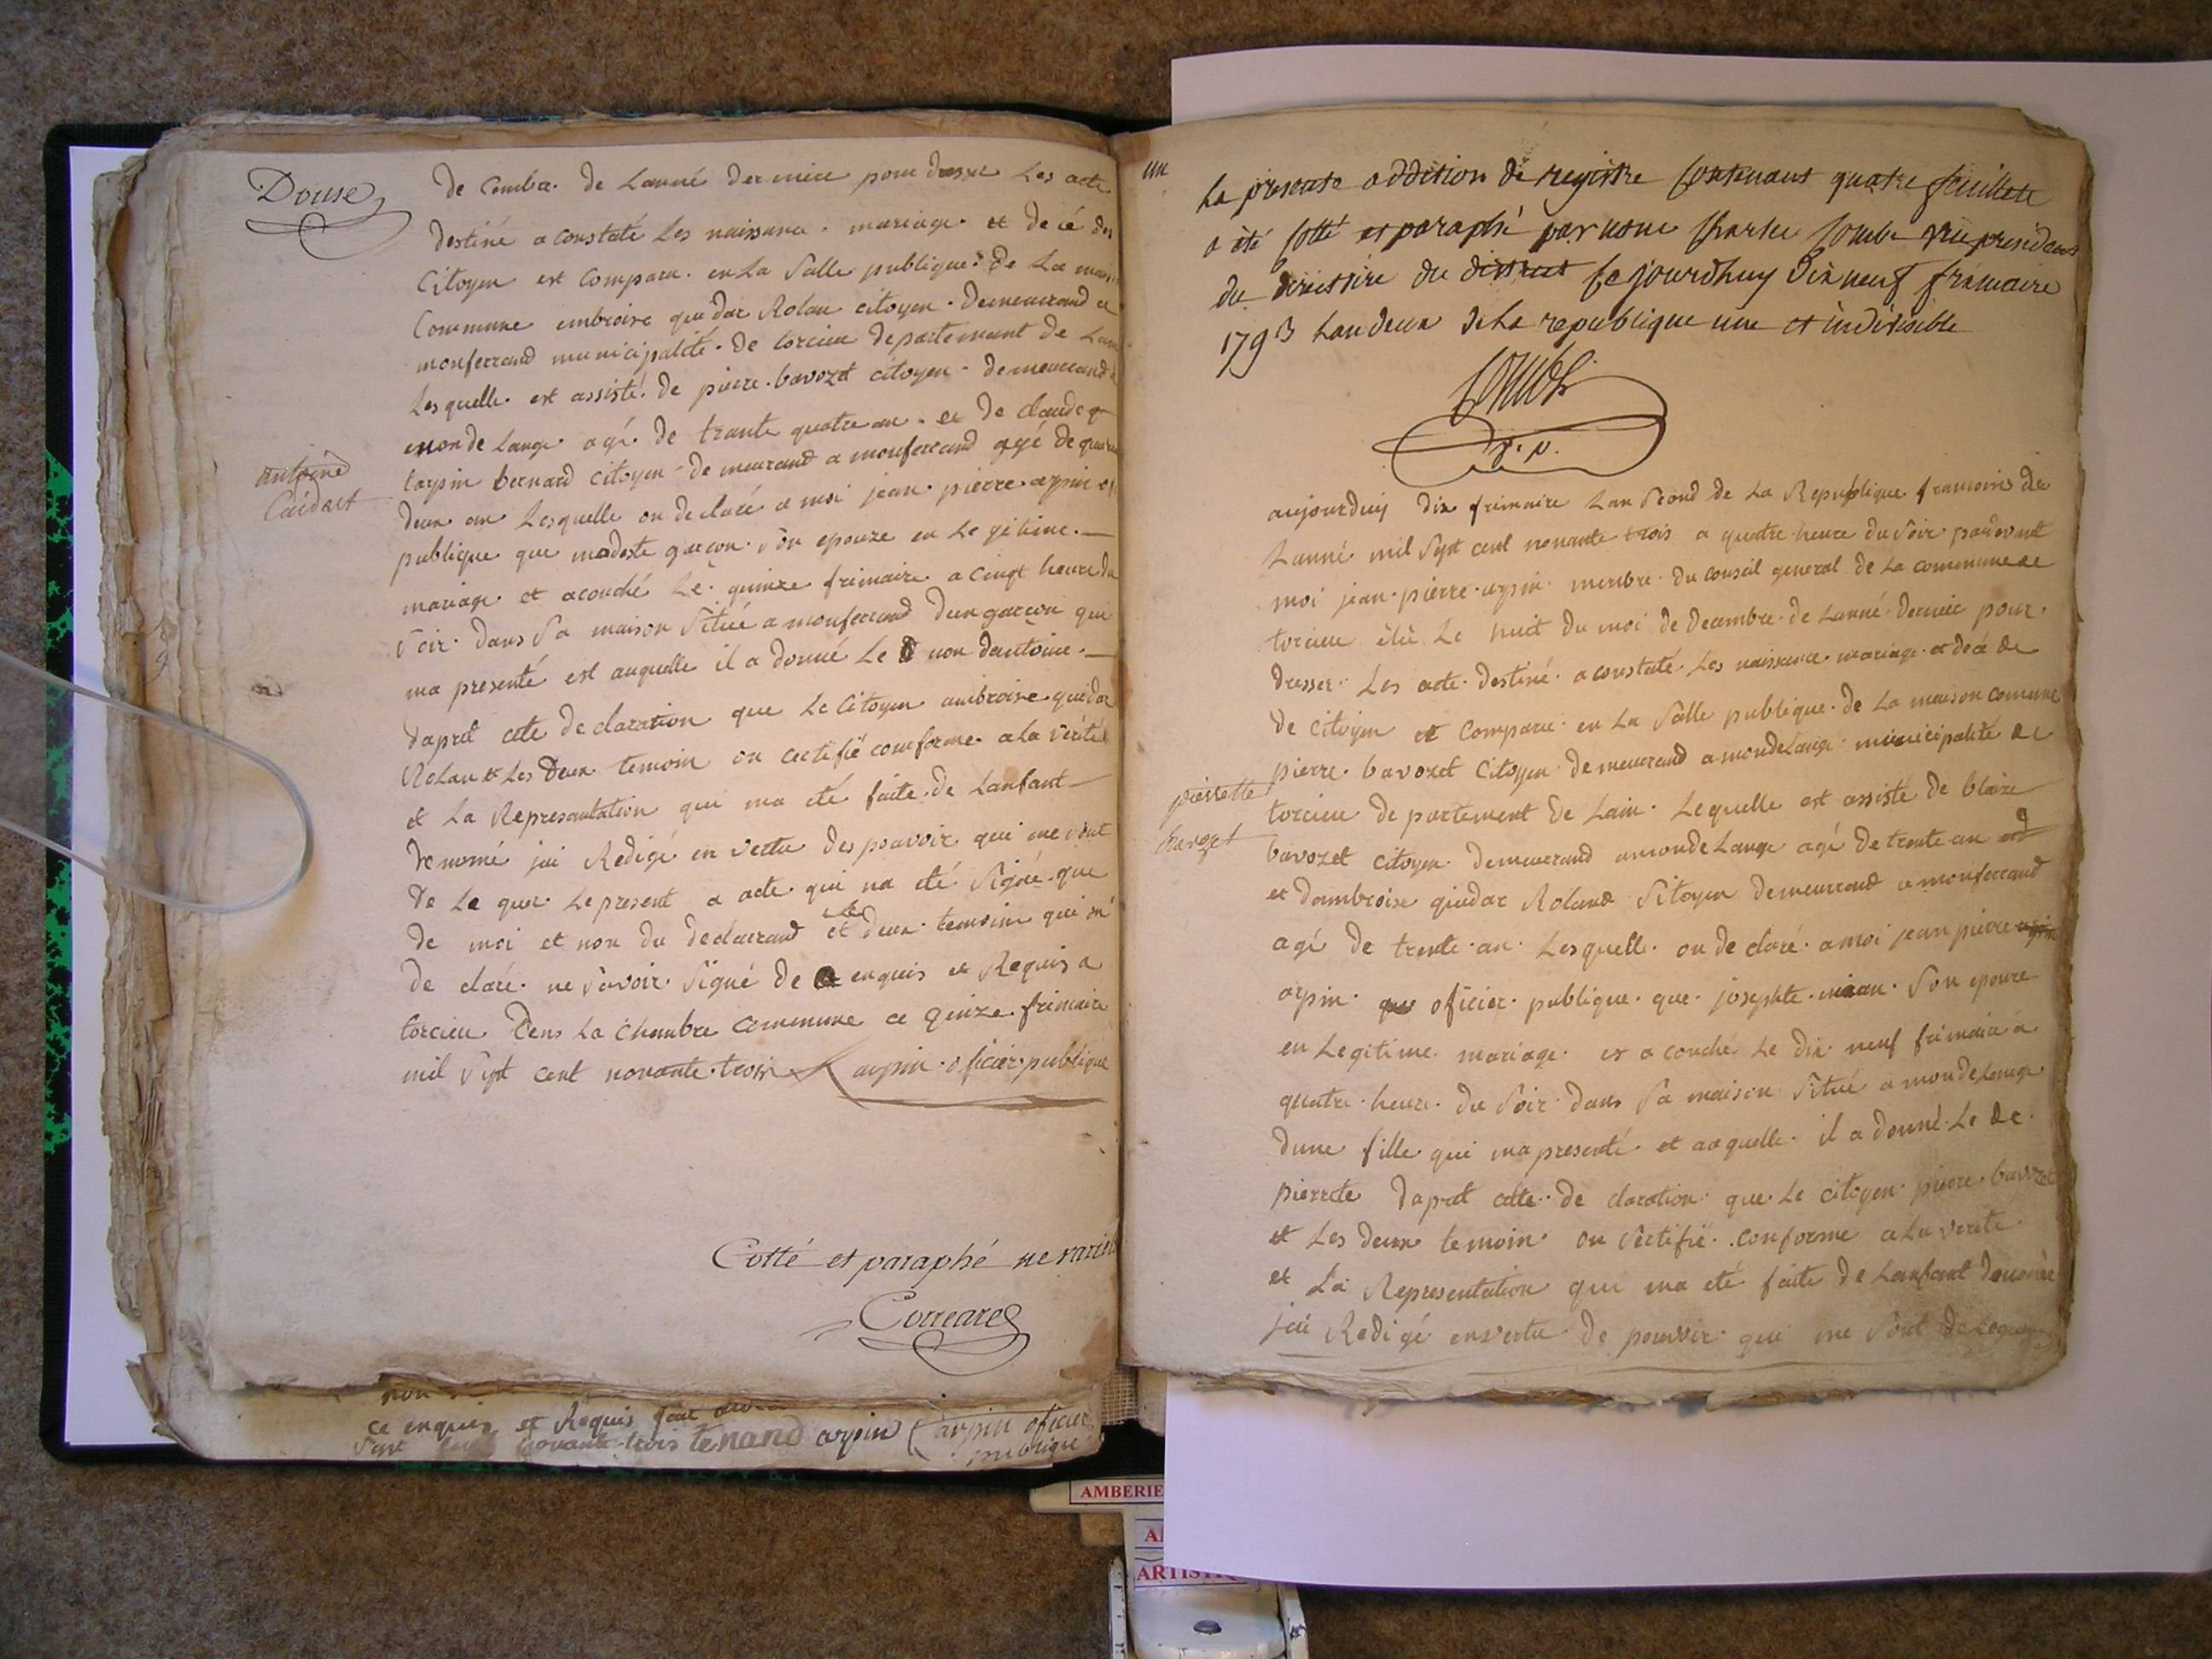 Douse
de comba. de Lanné derniere pour dresser Les acte
destiné a constaté Les naissance. mariage. et decé des
Citoyen est Comparu. en La Salle publique. de La maison
Commune embroise guidar Rolan citoyen. demeurand a
monferrand municipalité. de torcieu departement de Lain
Lesquelle. est assisté. de pierre. bavozet citoyen. demeurand a
monde Lange agé. de trante quatre an. et de claude
tarpin bernard citoyen. demeurand a monferrand agé de
antoine
Guidart
deux an Lesquelle on declaré a moi jean. pierre. arpin
publique que modeste garcon. Son epouze en Le gitime.
mariage et acouché Le. quinze frimaire a cinqt heure du
Soir. dans Sa maison Situé a monferrand dun garcon qui
ma presenté est auquelle il a donné Le non dantoine.
dapret cete declaration que Le Citoyen ambroise guidar
Rolan et Les deux temoin on certifié conforme a la verité
et La Representation qui ma eté faite. de Lanfant
denomé jai Redigé en vertu des pouvoir qui me sont
de Le gue. Le present a acte. qui na eté Signé. que
de moi et non du declarrand et Le deux. temoin qui on
de claré. ne Savoir. Signé de enquis et Requis a
torcieu Dens La chambre commune ce quinze. frimaire
mil Sept cent nonante. trois arpin. oficier. publique
Cotté et paraphé ne varie
Correare
non
ce enquis et Requis fait
Sept nonante trois tenand arpin arpin oficier
publique
un
La presente addition de registre Contenant quatre feuillets
a été Cotté et paraphé par nous Charles Combe vice president
du directoire du district Ce jourdhuy dix neuf frimaire
1793 Lan deux de La republique une et indivisible
Combe
v. p.
aujourduij dix frimaire Lan Second de La Republique francoise de
Lanné mil Sept cent nonante trois a quatre heure du Soir pardevant
moi jean. pierre. arpin. membre. du conseil general de La commune de
torcieu élu Le huit du moi de decambre. de Lanné. derniere pour.
dresser. Les acte. destiné. a constaté. Les naissance mariage. et decé de
de citoyen et Comparu. en La Salle publique. de La maison comune
pierre. bavozet Citoyen. demeurand a monde Lange. municipalité de
pierrette
bavozet
torcieu departement de Lain. Lequelle est assisté de blaize
bavozet citoyen. demeurrand a monde Lange agé de trente an
et dambroise guidar Roland Sitoyen demeurrand a monferrand
agé de trente. an. Lesquelle. on declaré. a moi jean pierre
arpin. oficier. publique. que. josephte. Son epouze
en Legitime. mariage. et a couché Le dix neuf frimaire a
quatre. heure. du Soir. dans Sa maison Situé a monde Lange
dune fille qui ma presenté et aaquelle. il a donné. Le de.
pierrete dapret cete. de claration. que. Le citoyen. pierre. bavozet
et Les deux temoin. on Certifié. conforme a La verite
et La Representation qui ma eté faite de Lanfant denomé
jai Redigé en vertu de pouvoir. qui me Sont de Legue
AMBERIE
ARTIST